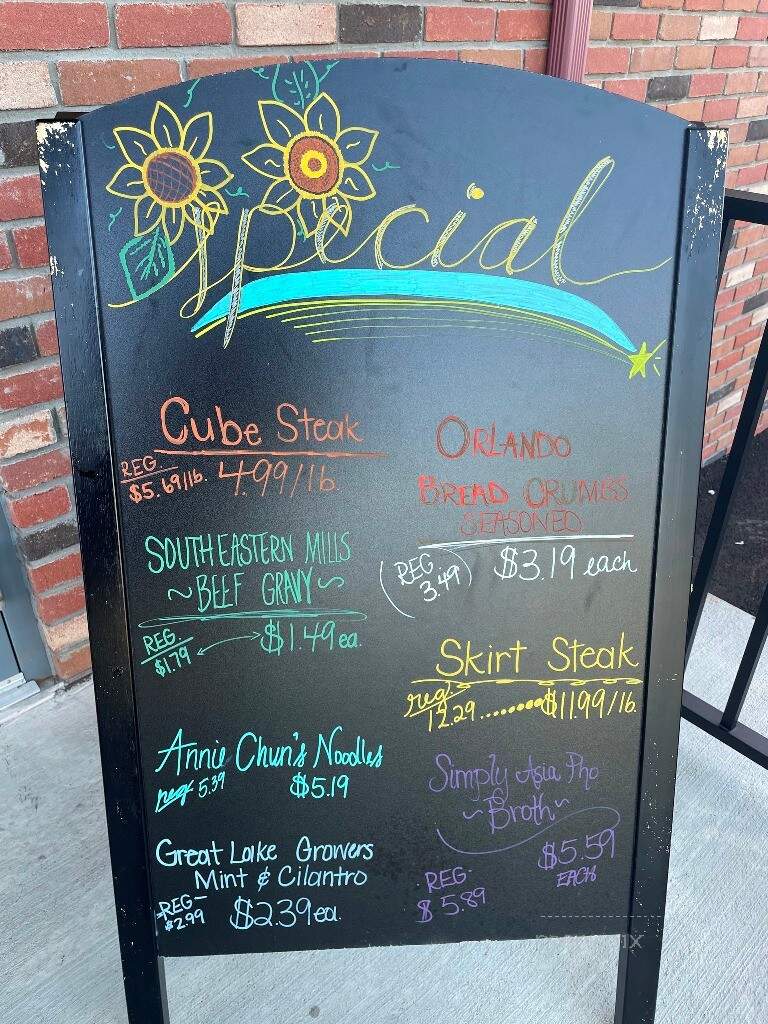 Special
Cube Steak
REG
$5.69/lb. 4.99/lb.
SOUTHEASTERN MILLS
~BEEF GRAVY~
REG
$1.79 $1.49 ea.
Annie Chun's Noodles
reg 5.39 $5.19
Great Lake Growers
Mint & Cilantro
REG
$2.99 $2.39 ea.
ORLANDO
BREAD CRUMBS
SEASONED
REG
3.49 $3.19 each
Skirt Steak
reg.
12.29........$11.99/lb.
Simply Asia Pho
~Broth~
REG.
$5.89
$5.59
EACH